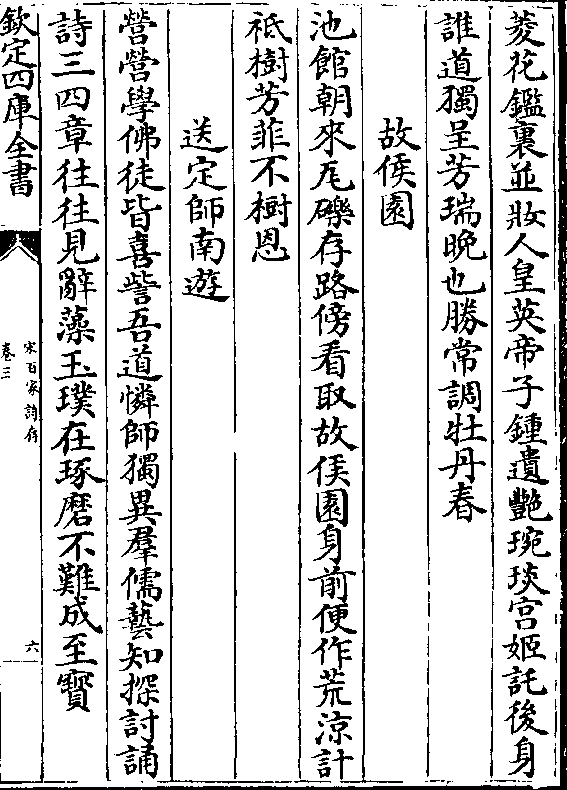 菱花鑑裏並妝人皇英帝子鍾遺艷琬琰宫姬託後身
誰道獨呈芳瑞晚也勝常調牡丹春
故侯園
池館朝來瓦礫存路傍看取故侯園身前便作荒涼計
祗樹芳菲不樹恩
送定師南遊
營營學佛徒皆喜訾吾道憐師獨異羣儒藝知探討誦
詩三四章往往見辭藻玉璞在琢磨不難成至寳
欽定四庫全書
宋百家詩存
卷三
六